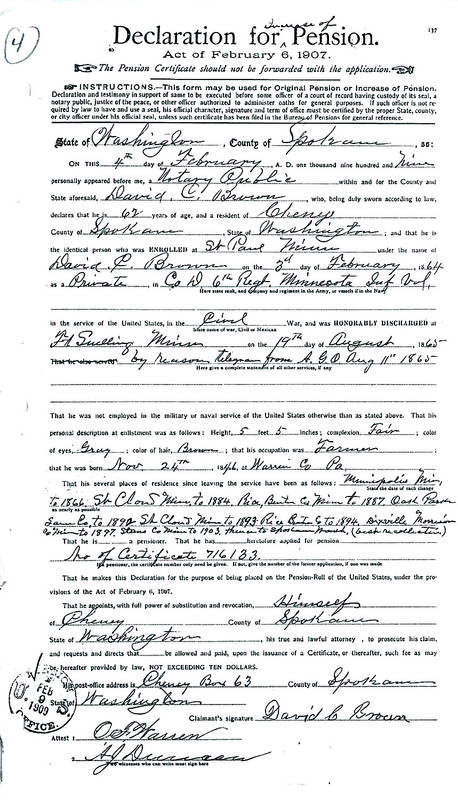 4
137
Increase of
Declaration for Pension.
Act of February 6, 1907.
The Pension Certificate should not be forwarded with the application.
INSTRUCTIONS.—This form may be used for Original Pension or Increase of Pension.
Declaration and testimony in support of same to be executed before some officer of a court of record having custody of its seal, a
notary public, justice of the peace, or other officer authorized to administer oaths for general purposes. If such officer is not re-
quired by law to have and use a seal, his official character, signature and term of office must be certified by the proper State, county,
or city officer under his official seal, unless such certificate has been filed in the Bureau of Pensions for general reference.
State of Washington, County of Spokane, ss:
ON THIS 4th day of February, A. D. one thousand nine hundred and Nine
personally appeared before me, a Notary Public within and for the County and
State aforesaid, David C. Brown, who, being duly sworn according to law,
declares that he is 62 years of age, and a resident of Cheney
County of Spokane, State of Washington; and that he is
the identical person who was ENROLLED at St Paul Minn under the name of
David C. Brown on the 3d day of February, 1864
as a Private in Co D 6th Regt. Minnesota Inf Vol,
Here state rank, and company and regiment in the Army, or vessels if in the Navy
in the service of the United States, in the Civil War, and was HONORABLY DISCHARGED at
State name of war, Civil or Mexican
Ft Snelling Minn on the 19th day of August, 1865
That he also served by reason telegram from A.G.O. Aug 11" 1865
Here give a complete statement of all other services, if any
That he was not employed in the military or naval service of the United States otherwise than as stated above. That his
personal description at enlistment was as follows: Height, 5 feet 5 inches; complexion, Fair; color
of eyes, Grey; color of hair, Brown; that his occupation was Farmer;
that he was born Nov. 24th, 1846, at Warren Co Pa.
That his several places of residence since leaving the service have been as follows: Minneapolis Min,
State the date of each change
to 1866. St Cloud Minn. to 1884. Rice, Benton Co Minn to 1887. Oak Park
as nearly as possible
Co, to 1890 St Cloud Minn to 1893 Rice to 1894. Morrison
Co Minn to 1897. Co Minn to 1903. thence to Spokane (best recollection)
That he is a pensioner. That he has heretofore applied for pension
No of Certificate 716133.
If a pensioner, the certificate number only need be given. If not, give the number of the former application, if one was made
That he makes this Declaration for the purpose of being placed on the Pension-Roll of the United States, under the pro-
visions of the Act of February 6, 1907.
That he appoints, with full power of substitution and revocation, Himself
of Cheney County of Spokane
State of Washington, his true and lawful attorney, to prosecute his claim,
and requests and directs that be allowed and paid, upon the issuance of a Certificate, or thereafter, such fee as may
be hereafter provided by law, NOT EXCEEDING TEN DOLLARS.
His post-office address is Cheney Box 63 County of Spokane
State of Washington
FEB
9
1909
OFFICE.
Claimant's signature David C Brown
Attest: 1 O. F. Warren
2 A J Duncan
Two witnesses who can write must sign here